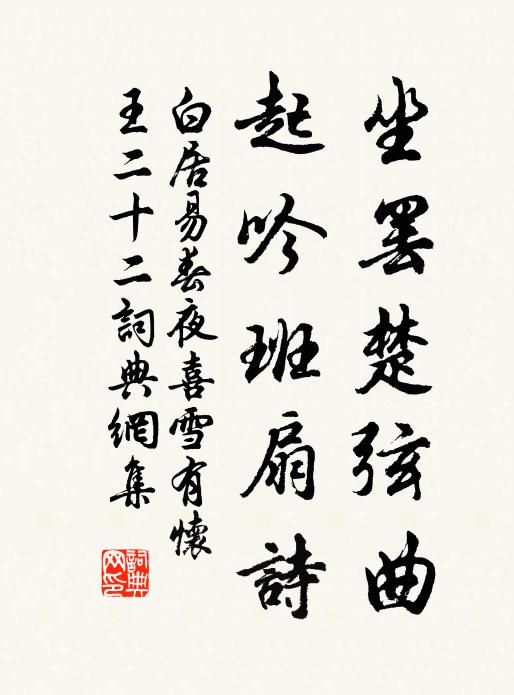 坐罢楚弦曲
起吟班扇詩
白居易春夜喜雪有懷
王二十二詞典網集
詞典
网印